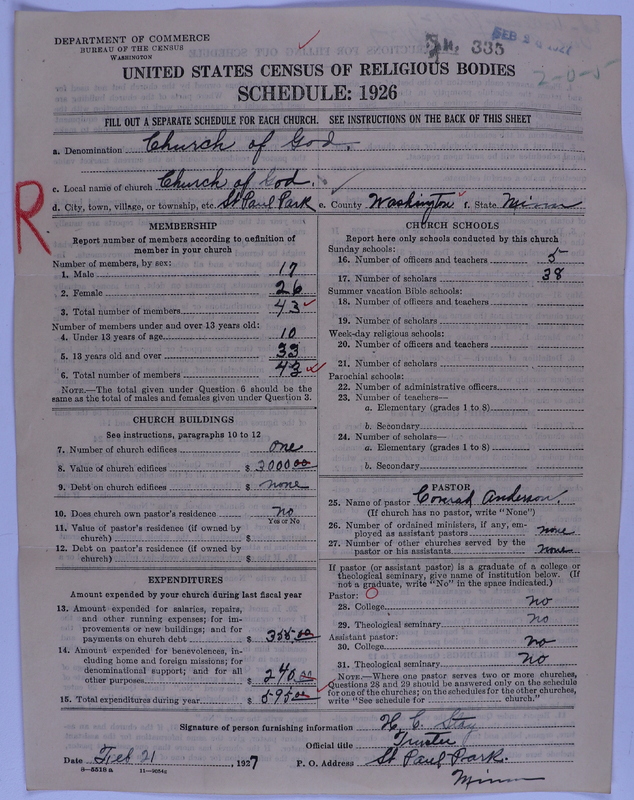 DEPARTMENT OF COMMERCE
BUREAU OF THE CENSUS
WASHINGTON
335
FEB
2-0-5
UNITED STATES CENSUS OF RELIGIOUS BODIES
SCHEDULE: 1926
FILL OUT A SEPARATE SCHEDULE FOR EACH CHURCH. SEE INSTRUCTIONS ON THE BACK OF THIS SHEET
a. Denomination Church of God.
c. Local name of church Church of God.
d. City, town, village, or township, etc. St Paul Park e. County Washington f. State Minn
R
MEMBERSHIP
Report number of members according to definition of
member in your church
Number of members, by sex:
1. Male 17
2. Female 26
3. Total number of members 43
Number of members under and over 13 years old:
4. Under 13 years of age 10
5. 13 years old and over 33
6. Total number of members 43
NOTE.—The total given under Question 6 should be the
same as the total of males and females given under Question 3.
CHURCH BUILDINGS
See instructions, paragraphs 10 to 12
7. Number of church edifices one
8. Value of church edifices $ 3000.00
9. Debt on church edifices $ none
10. Does church own pastor's residence no
Yes or No
11. Value of pastor's residence (if owned by
church) $
12. Debt on pastor's residence (if owned by
church) $
EXPENDITURES
Amount expended by your church during last fiscal year
13. Amount expended for salaries, repairs,
and other running expenses; for im-
provements or new buildings; and for
payments on church debt $ 355.00
14. Amount expended for benevolences, in-
cluding home and foreign missions; for
denominational support; and for all
other purposes $ 240.00
15. Total expenditures during year $ 595.00
CHURCH SCHOOLS
Report here only schools conducted by this church
Sunday schools:
16. Number of officers and teachers 5
17. Number of scholars 38
Summer vacation Bible schools:
18. Number of officers and teachers
19. Number of scholars
Week-day religious schools:
20. Number of officers and teachers
21. Number of scholars
Parochial schools:
22. Number of administrative officers
23. Number of teachers—
a. Elementary (grades 1 to 8)
b. Secondary
24. Number of scholars—
a. Elementary (grades 1 to 8)
b. Secondary
PASTOR
25. Name of pastor Conrad Anderson.
(If church has no pastor, write "None")
26. Number of ordained ministers, if any, em-
ployed as assistant pastors none
27. Number of other churches served by the
pastor or his assistants none
If pastor (or assistant pastor) is a graduate of a college or
theological seminary, give name of institution below. (If
not a graduate, write "No" in the space indicated.)
Pastor: O
28. College no
29. Theological seminary no
Assistant pastor:
30. College no
31. Theological seminary No
NOTE.—Where one pastor serves two or more churches,
Questions 28 and 29 should be answered only on the schedule
for one of the churches; on the schedules for the other churches,
write "See schedule for church."
Signature of person furnishing information H. C. Stay
Official title Trustee
Date Feb 21, 1927 P. O. Address St Paul Park.
Minn
8—5518a 11—9054